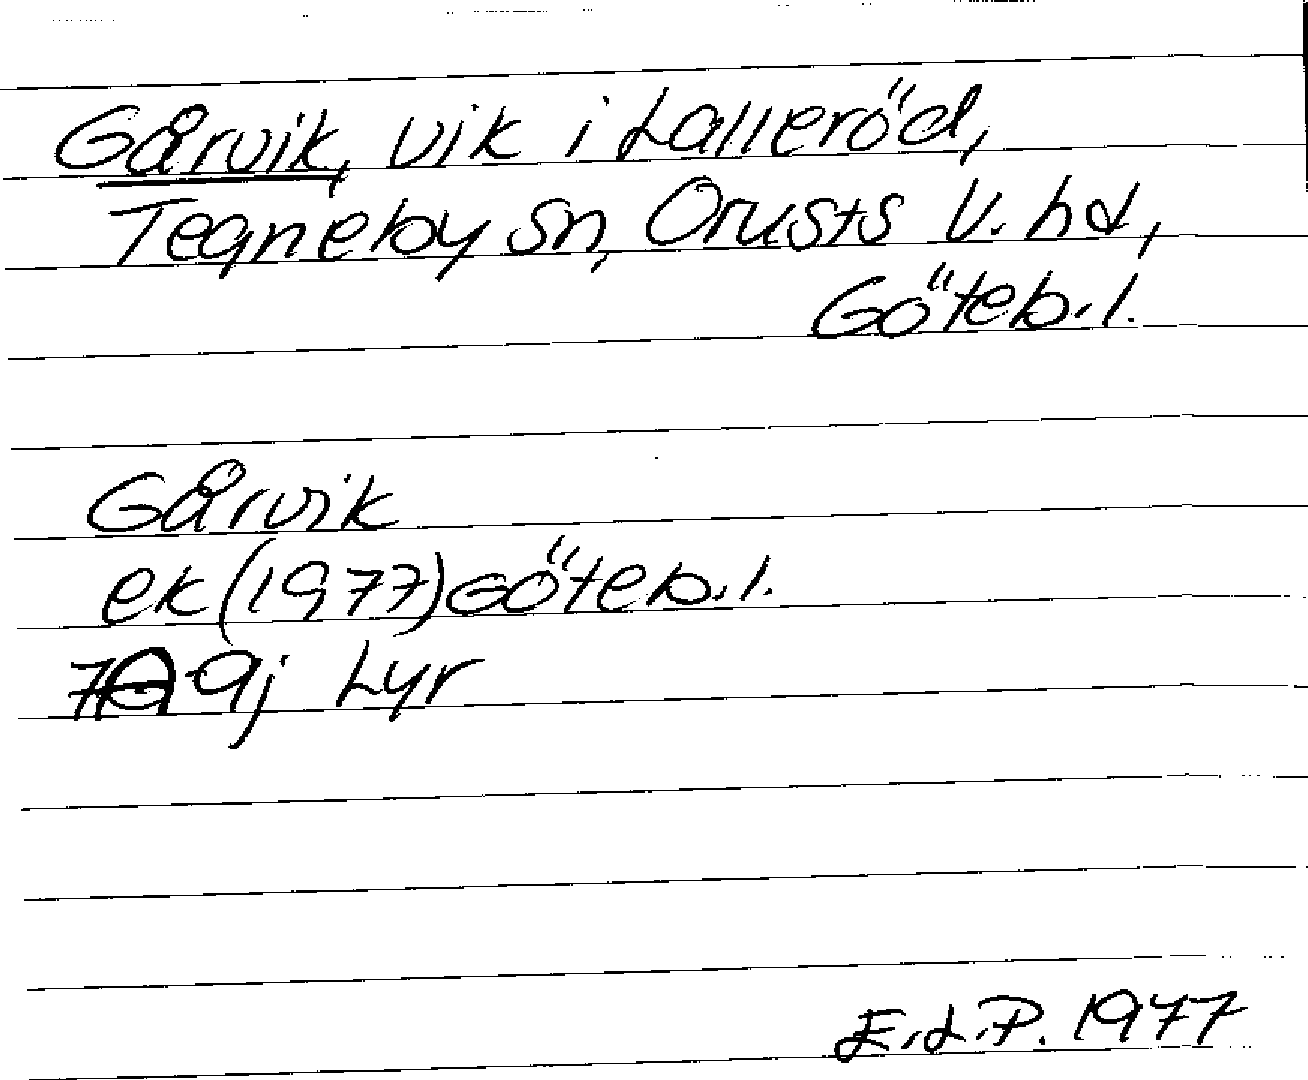 Gårvik, vik i Lalleröd,
Tegneby sn, Orusts V. hd,
Göteb. l.
Gårvik
ek (1977) Göteb. l.
7A 9j Lyr
E.L.P. 1977